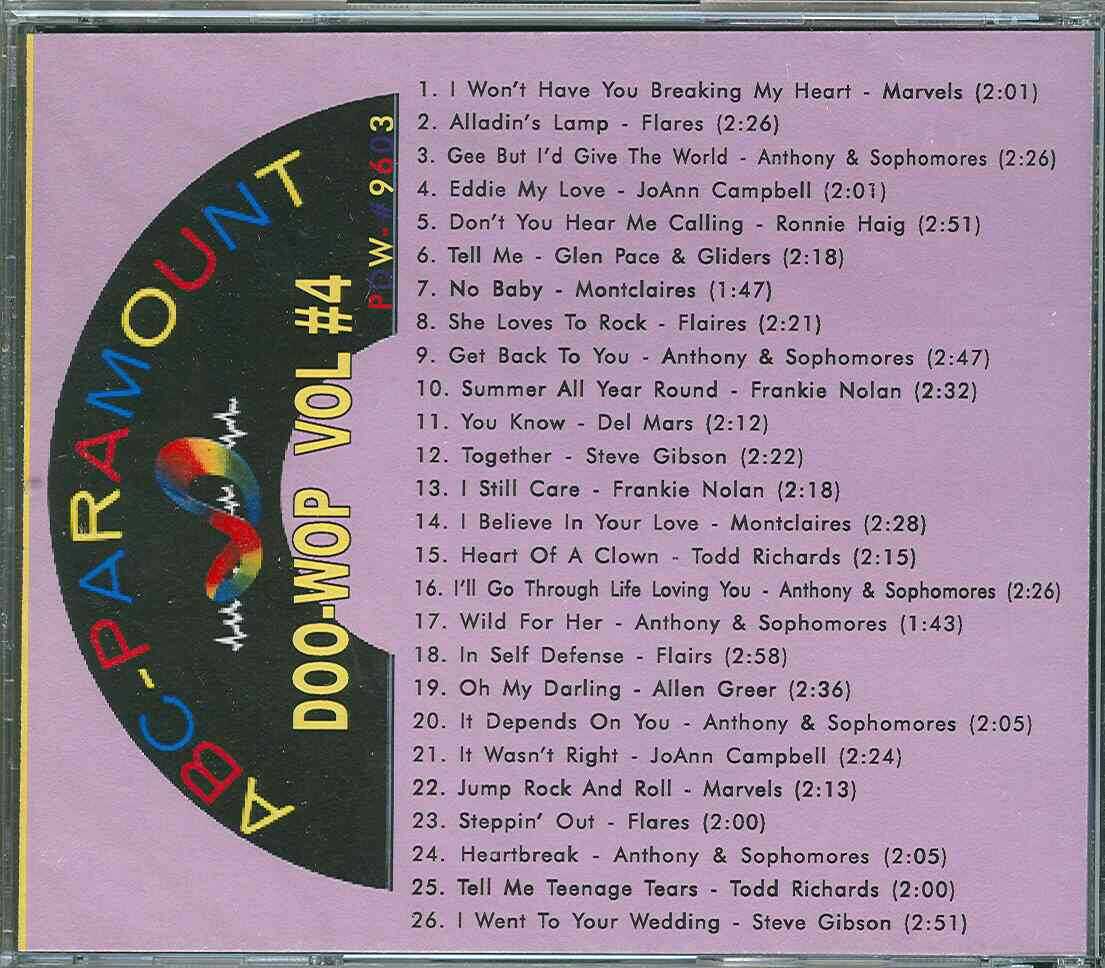 ABC-PARAMOUNT
DOO-WOP VOL #4
PDW-#9603
1. I Won't Have You Breaking My Heart - Marvels (2:01)
2. Alladin's Lamp - Flares (2:26)
3. Gee But I'd Give The World - Anthony & Sophomores (2:26)
4. Eddie My Love - JoAnn Campbell (2:01)
5. Don't You Hear Me Calling - Ronnie Haig (2:51)
6. Tell Me - Glen Pace & Gliders (2:18)
7. No Baby - Montclaires (1:47)
8. She Loves To Rock - Flaires (2:21)
9. Get Back To You - Anthony & Sophomores (2:47)
10. Summer All Year Round - Frankie Nolan (2:32)
11. You Know - Del Mars (2:12)
12. Together - Steve Gibson (2:22)
13. I Still Care - Frankie Nolan (2:18)
14. I Believe In Your Love - Montclaires (2:28)
15. Heart Of A Clown - Todd Richards (2:15)
16. I'll Go Through Life Loving You - Anthony & Sophomores (2:26)
17. Wild For Her - Anthony & Sophomores (1:43)
18. In Self Defense - Flairs (2:58)
19. Oh My Darling - Allen Greer (2:36)
20. It Depends On You - Anthony & Sophomores (2:05)
21. It Wasn't Right - JoAnn Campbell (2:24)
22. Jump Rock And Roll - Marvels (2:13)
23. Steppin' Out - Flares (2:00)
24. Heartbreak - Anthony & Sophomores (2:05)
25. Tell Me Teenage Tears - Todd Richards (2:00)
26. I Went To Your Wedding - Steve Gibson (2:51)